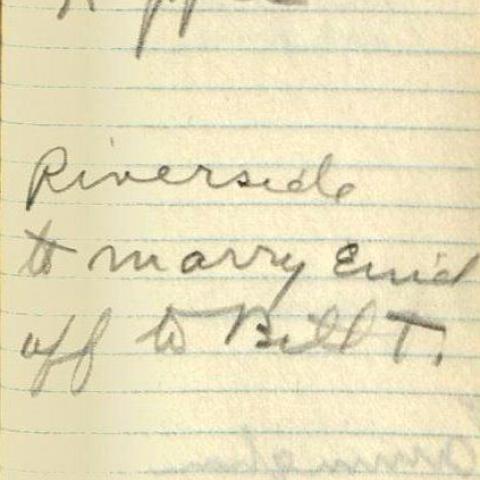 Riverside
to marry Enid
off to Bill T.